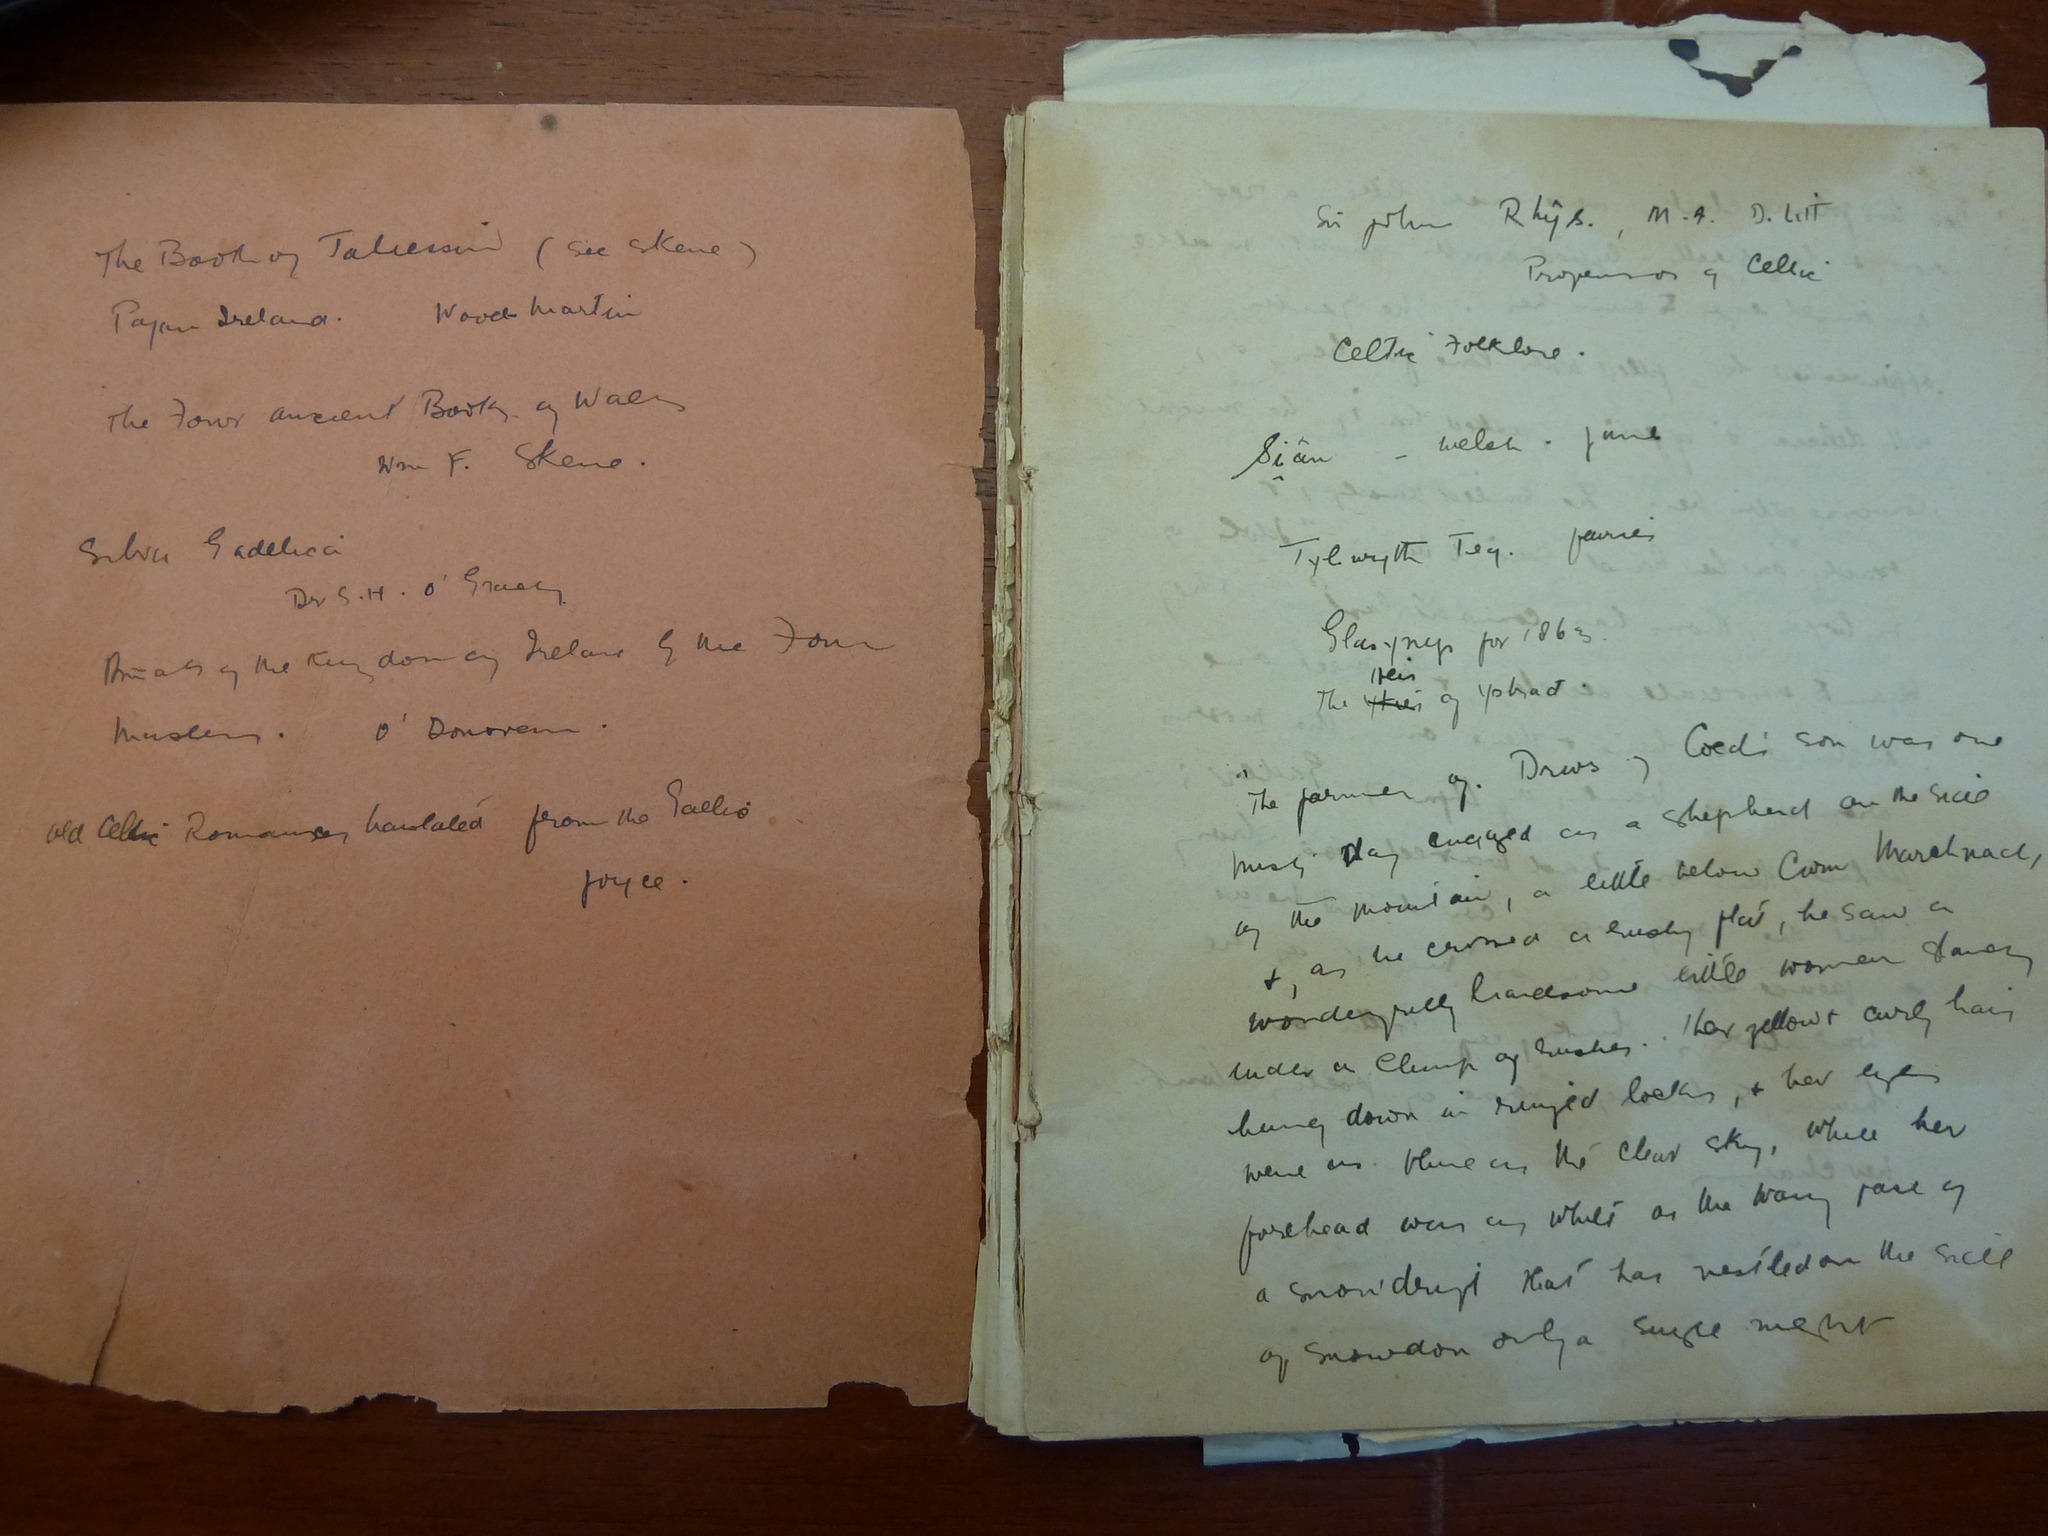 The Book of Taliessin (see Skene)
Pagan Ireland. Wood-Martin
The Four ancient Books of Wales
Wm F. Skene.
Silva Gadelica
Dr S. H. O'Grady
Annals of the Kingdom of Ireland by the Four
Masters. O'Donovan.
old Celtic Romances translated from the Gaelic
Joyce.
Sir John Rhŷs., M.A. D.Litt
Professor of Celtic
Celtic Folklore.
Siân - Welsh. Jane
Tylwyth Teg. fairies
Glasynys for 1863.
Heir
The of Ystrad.
"The farmer of Drws y Coed's son was one
misty day engaged as a shepherd on the side
of the mountain, a little below Cwm Marchnad,
+, as he crossed a rushy flat, he saw a
wonderfully handsome little woman standing
under a clump of rushes. Her yellow + curly hair
hung down in ringed locks, + her eyes
were as blue as the clear sky, while her
forehead was as white as the wavy face of
a snowdrift that has nestled on the side
of Snowdon only a single night